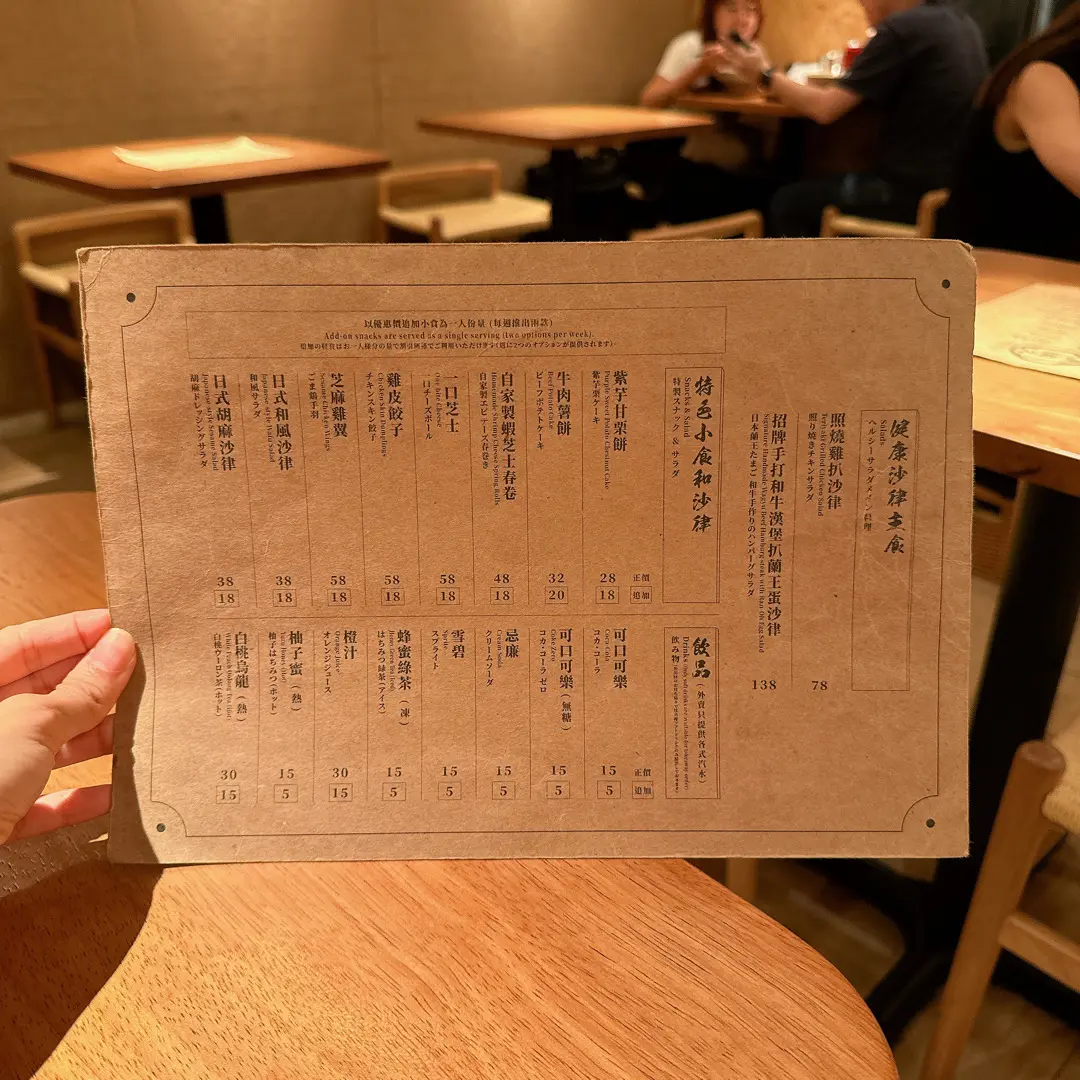 健康沙律主食
Salads
ヘルシーサラダメイン料理
照燒雞扒沙律
Teriyaki Grilled Chicken Salad
照り焼きチキンサラダ
78
招牌手打和牛漢堡扒蘭王蛋沙律
Signature Handmade Wagyu Beef Hamburg steak with Ran-Oh Egg Salad
日本蘭王たまご和牛手作りのハンバーグサラダ
138
以優惠價追加小食為一人份量 (每週推出兩款)
Add-on snacks are served as a single serving (two options per week).
特色小食和沙律
Snacks & Salad
特製スナック & サラダ
正價
追加
紫芋甘栗餅
Purple Sweet Potato Chestnut Cake
紫芋栗ケーキ
28
18
牛肉薯餅
Beef Potato Cake
ビーフポテトケーキ
32
20
自家製蝦芝士春卷
Homemade Shrimp Cheese Spring Rolls
自家製エビチーズ春巻き
48
18
一口芝士
One Bite Cheese
一口チーズボール
58
18
雞皮餃子
Chicken Skin Dumplings
チキンスキン餃子
58
18
芝麻雞翼
Sesame Chicken Wings
ごま鶏手羽
58
18
日式和風沙律
Japanese style Wafu Salad
和風サラダ
38
18
日式胡麻沙律
Japanese style Sesame Salad
胡麻ドレッシングサラダ
38
18
飲品 (外賣只提供各式汽水)
Drinks
飲み物
正價
追加
可口可樂
Coca Cola
コカ・コーラ
15
5
可口可樂 (無糖)
Coke Zero
コカ・コーラ ゼロ
15
5
忌廉
Cream Soda
クリームソーダ
15
5
雪碧
Sprite
スプライト
15
5
蜂蜜綠茶 (凍)
Honey Green Tea (Iced)
はちみつ緑茶 (アイス)
15
5
橙汁
Orange Juice
オレンジジュース
30
15
柚子蜜 (熱)
Yuzu Honey (Hot)
柚子はちみつ (ホット)
15
5
白桃烏龍 (熱)
White Peach Oolong Tea (Hot)
白桃ウーロン茶 (ホット)
30
15